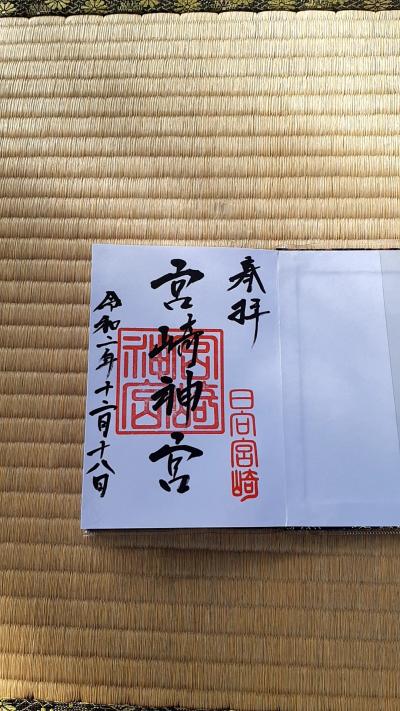 奉拝
宮崎神宮
宮崎
神宮
日向宮崎
令和二年十二月十八日